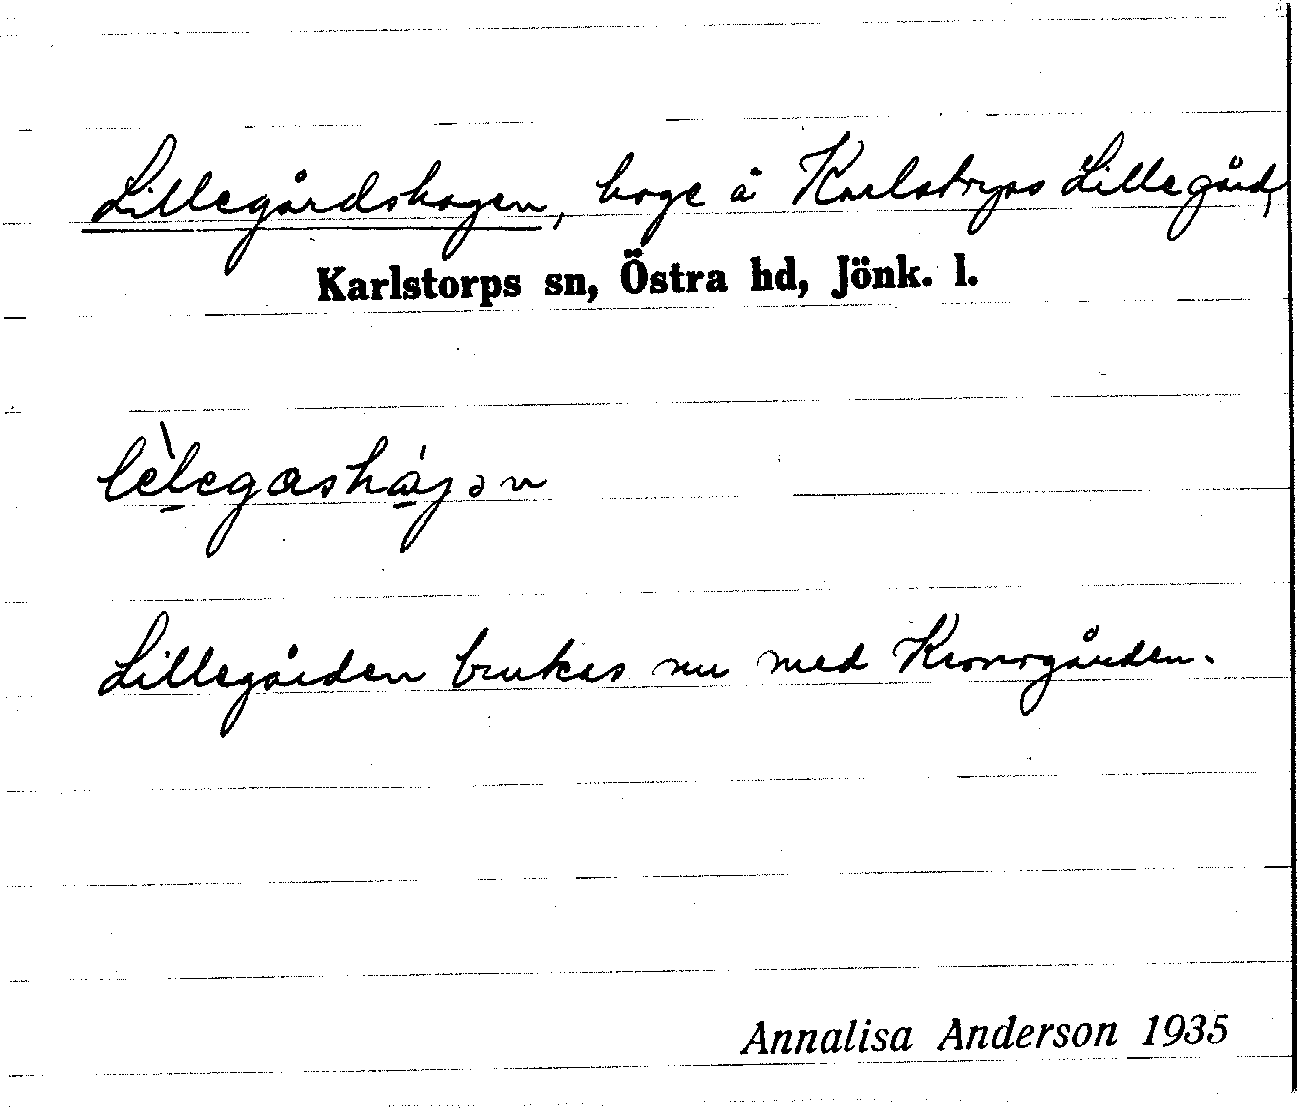 Lillegårdshagen, hage å Karlstorps Lillegård,
Karlstorps sn, Östra hd, Jönk. l.
lèlegashájən
Lillegården brukas nu med Kronogården.
Annalisa Anderson 1935